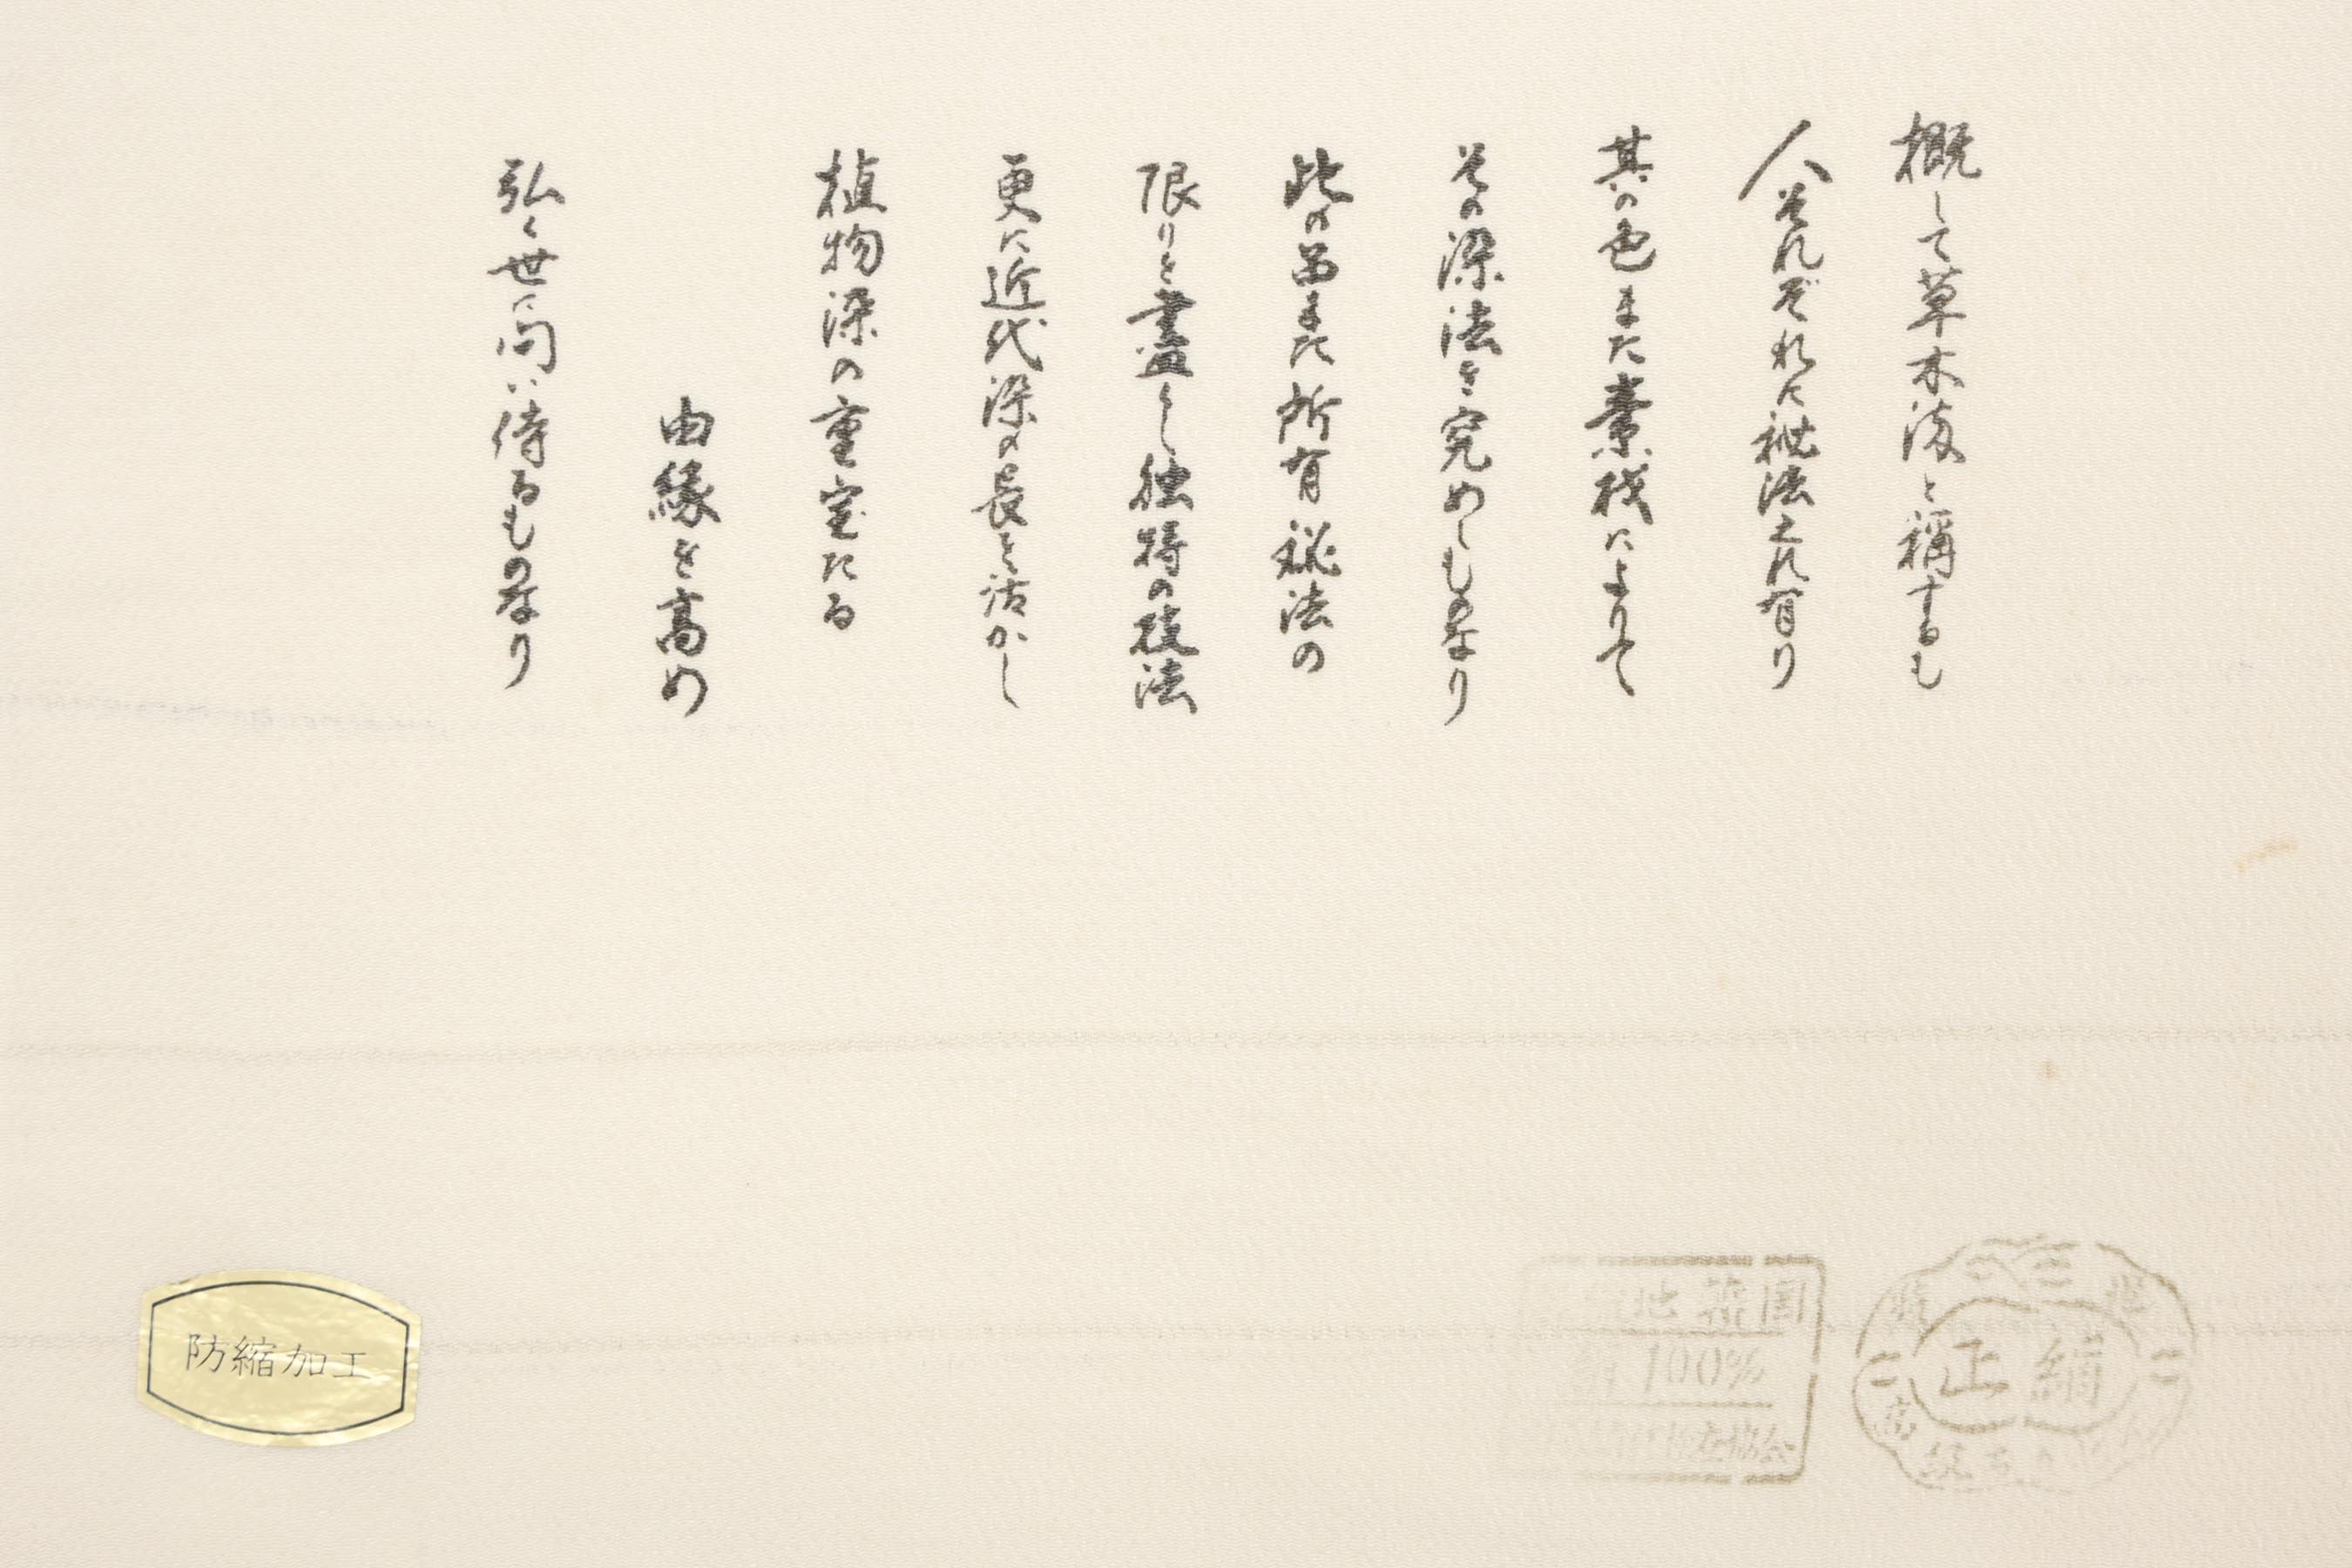 概して草木染と稱するも
人それぞれに秘法之れ有り
其の色また素材によりて
その染法を究めしものなり
此の品また所有秘法の
限りを盡くし独特の技法
更に近代染の長を活かし
植物染の重宝たる
由縁を高め
弘く世に問い侍るものなり
防縮加工
地 韓国
100%
正絹